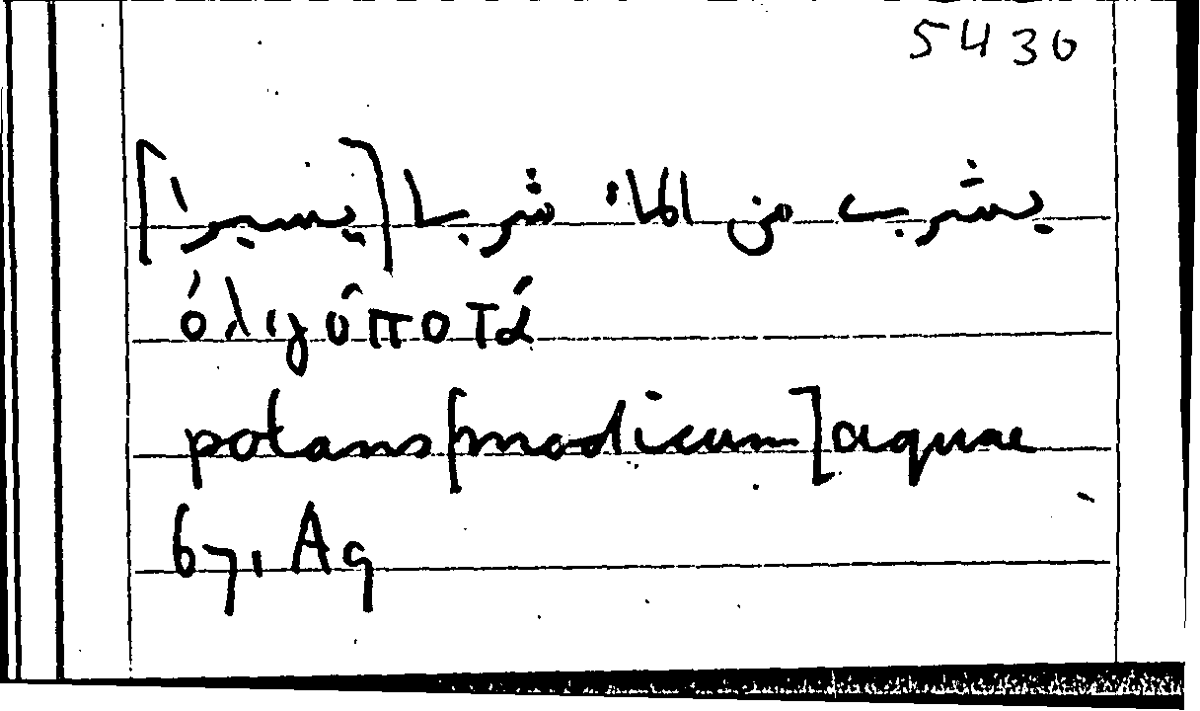 5430
يشرب من الماء شربا [يسيرا]
ὀλιγόποτά
potans [modicum] aquae
67, A9